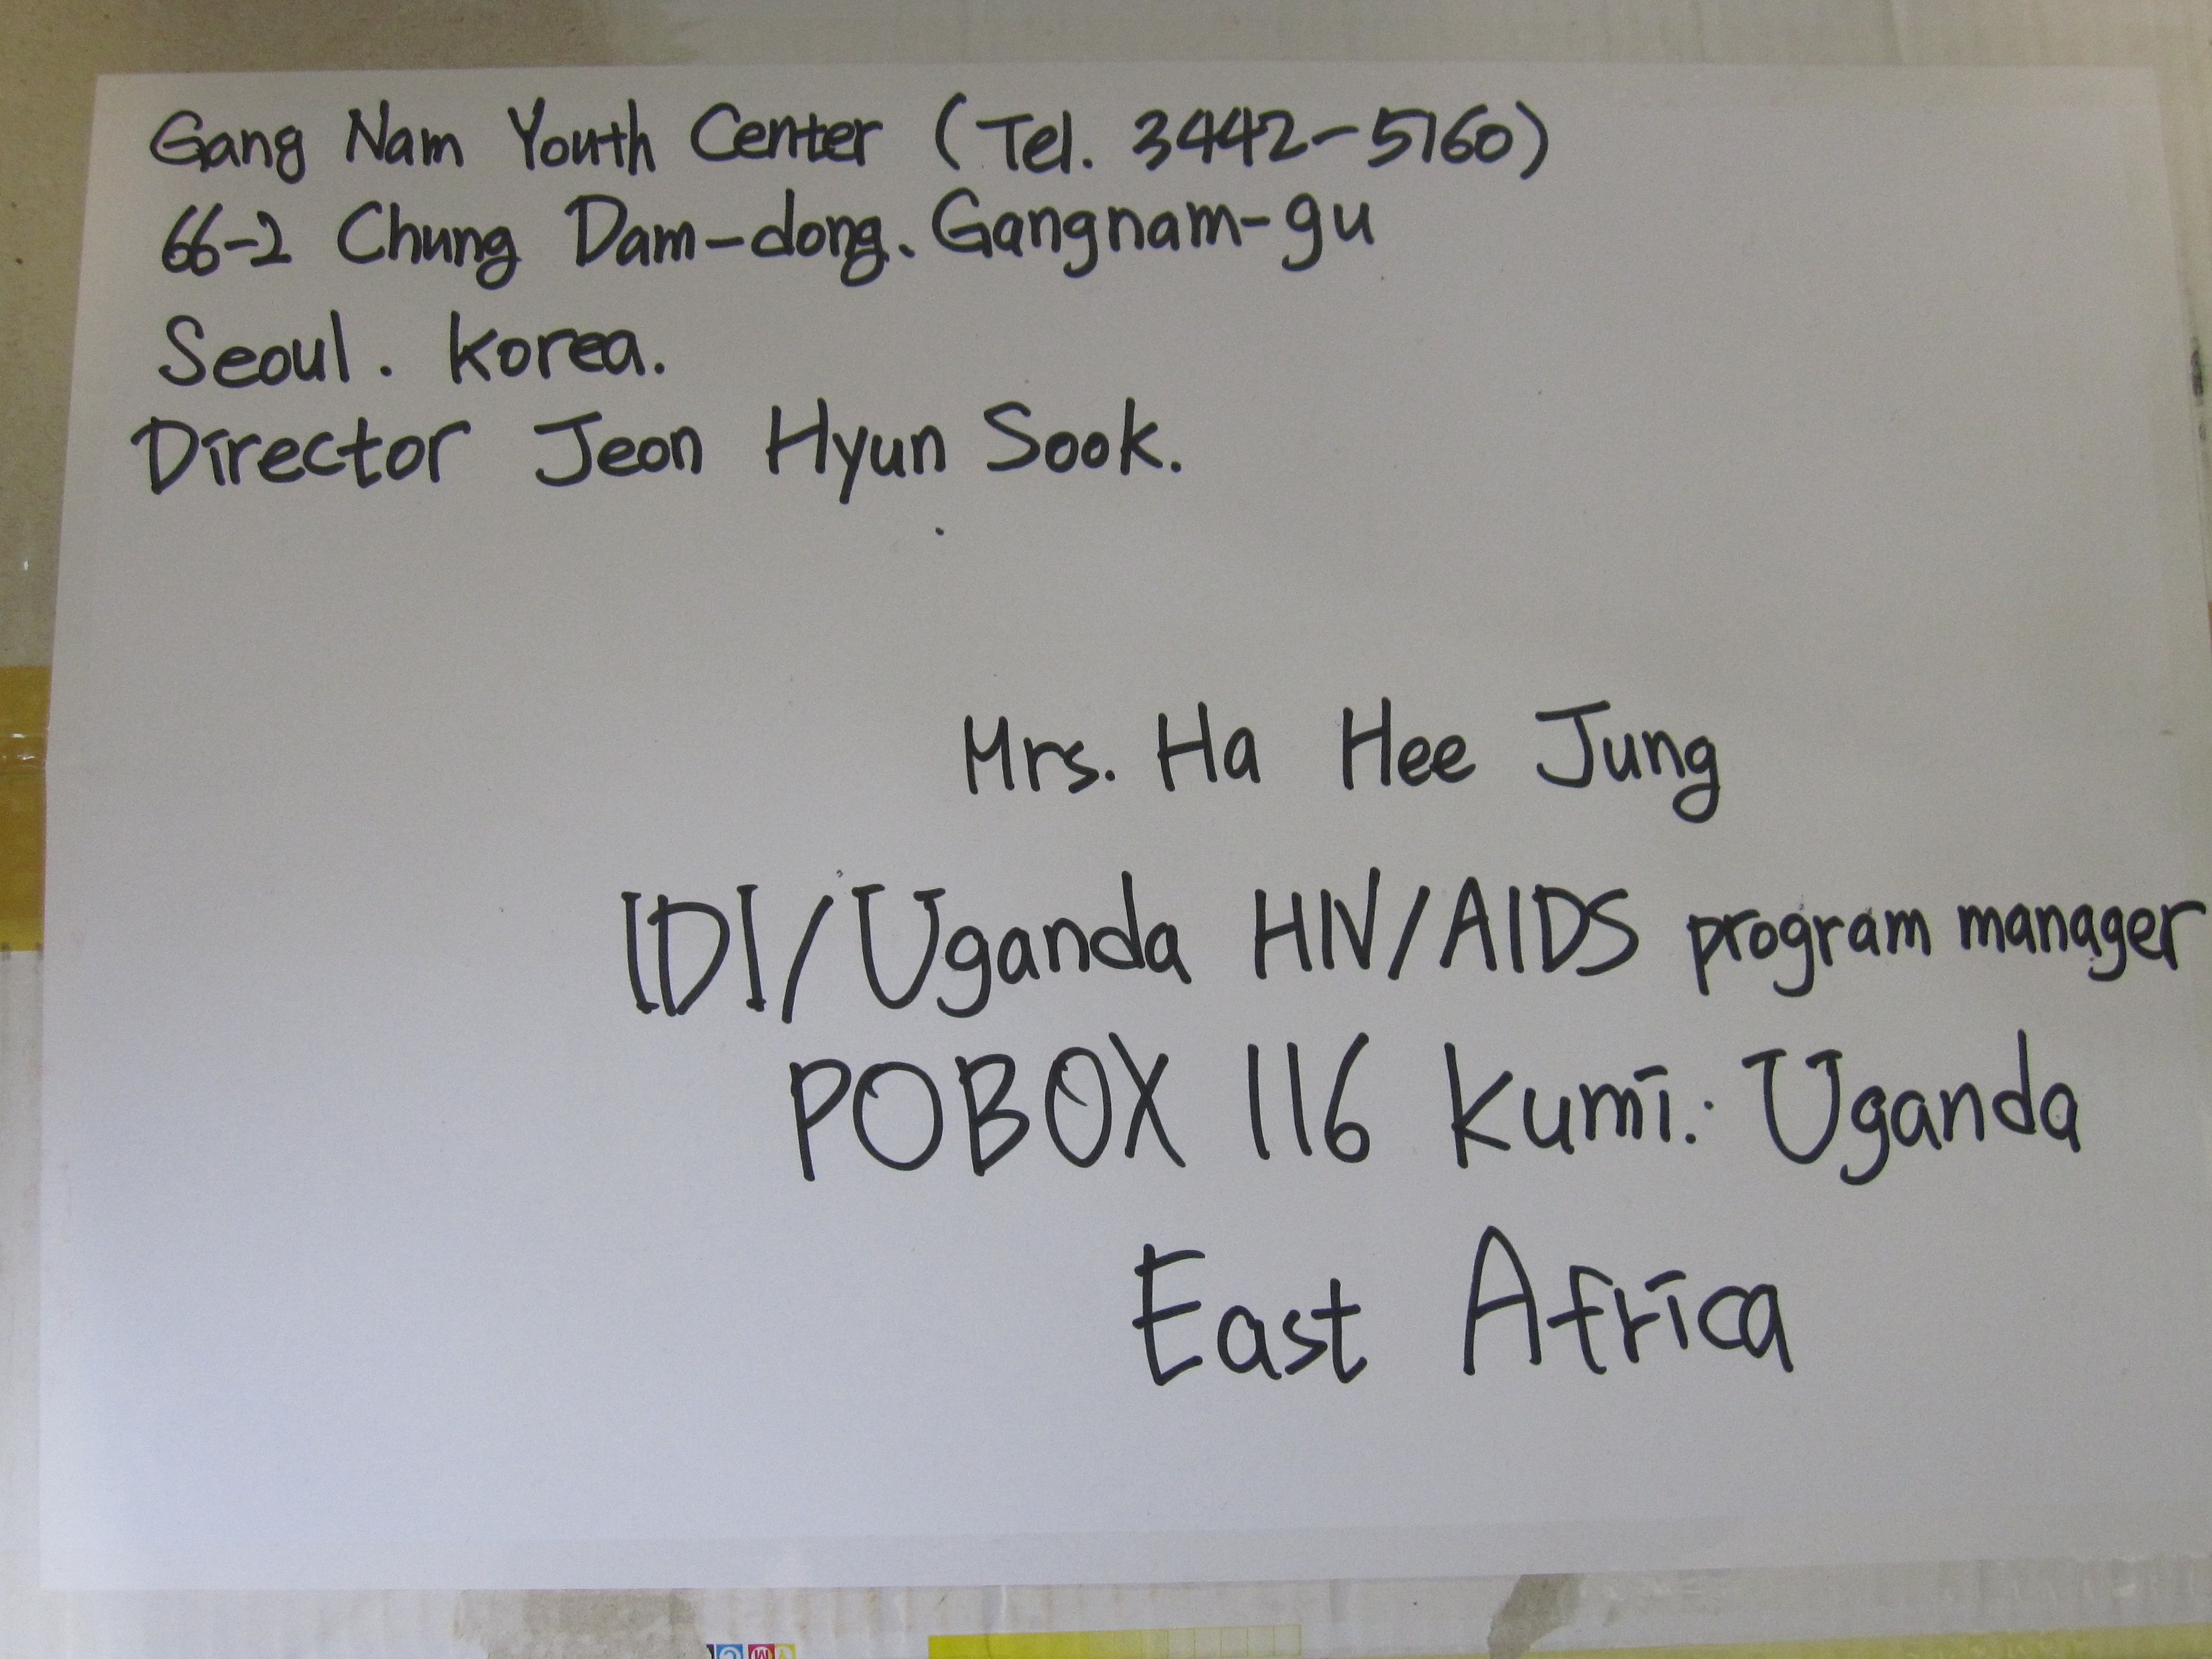 Gang Nam Youth Center (Tel. 3442-5160)
66-2 Chung Dam-dong. Gangnam-gu
Seoul. Korea.
Director Jeon Hyun Sook.
Mrs. Ha Hee Jung
IDI/Uganda HIV/AIDS program manager
POBOX 116 Kumi. Uganda
East Africa